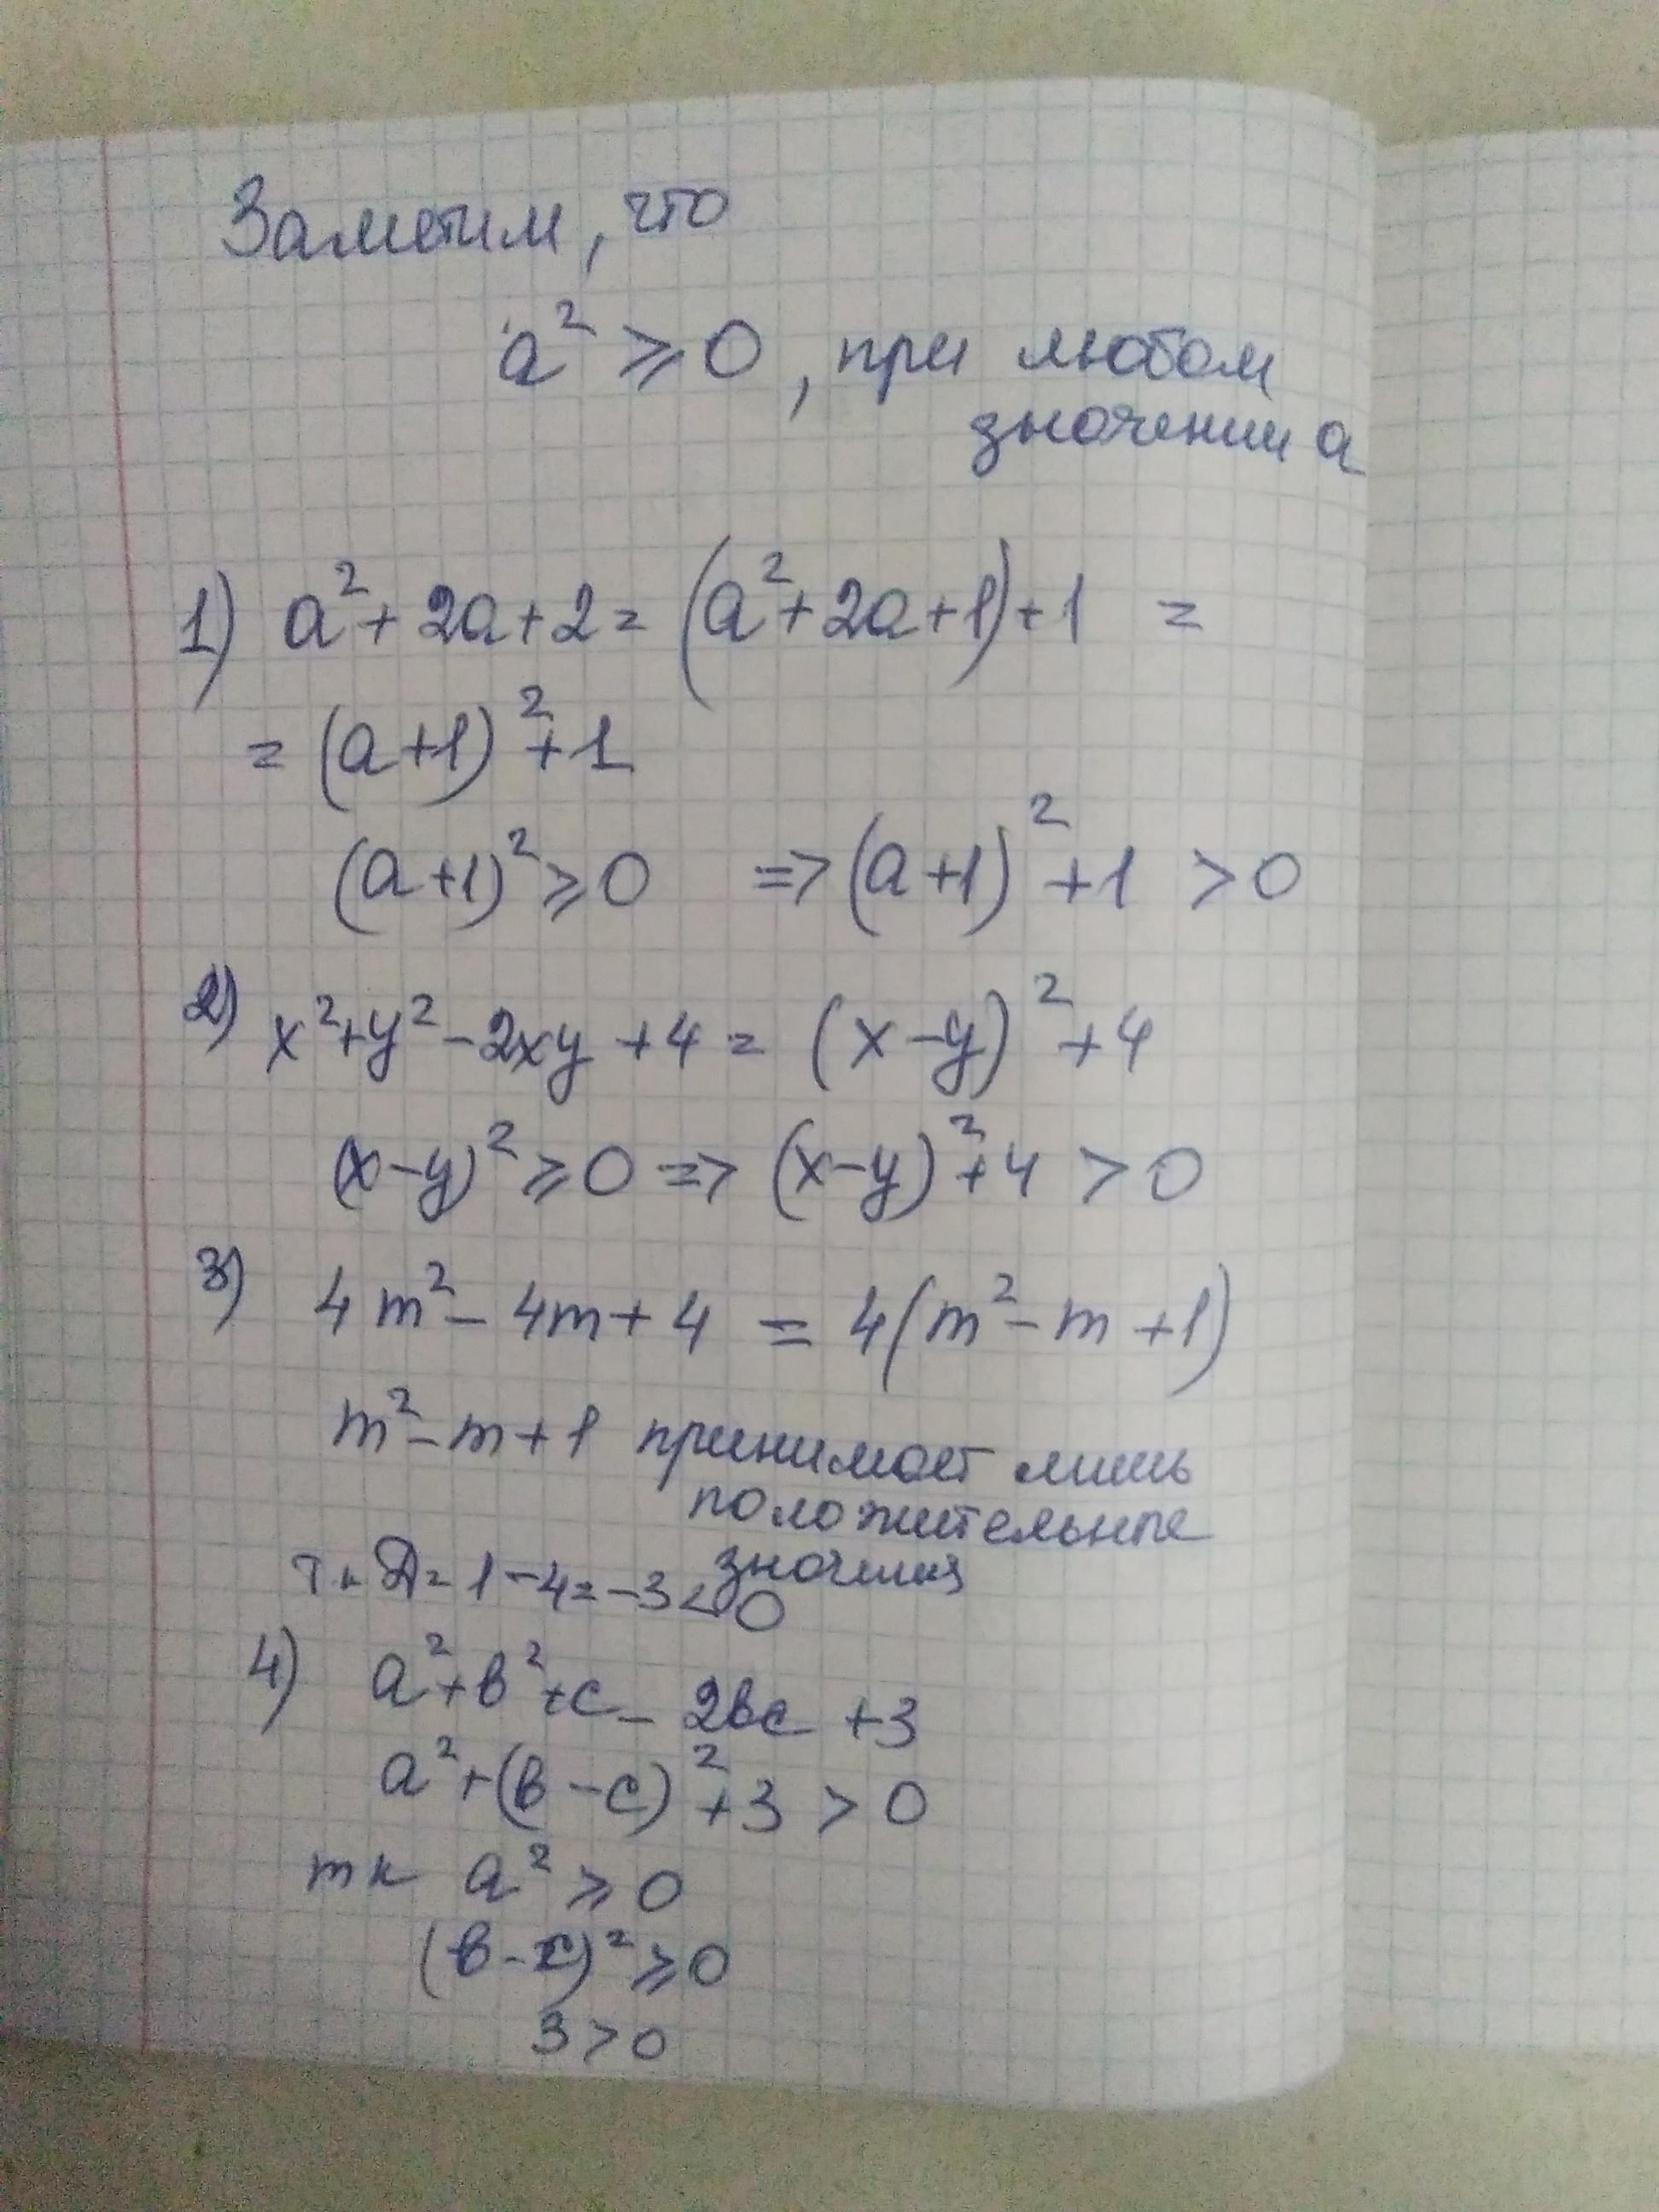 Заметим, что
a² ⩾ 0, при любом
значении a
1) a² + 2a + 2 = (a² + 2a + 1) + 1 =
= (a+1)² + 1
(a+1)² ⩾ 0 => (a+1)² + 1 > 0
2) x² + y² - 2xy + 4 = (x-y)² + 4
(x-y)² ⩾ 0 => (x-y)² + 4 > 0
3) 4m² - 4m + 4 = 4(m² - m + 1)
m² - m + 1 принимает лишь
положительные
значения
т.к Д = 1 - 4 = -3 < 0
4) a² + в² + c - 2вc + 3
a² + (в - c)² + 3 > 0
тк a² ⩾ 0
(в - c)² ⩾ 0
3 > 0